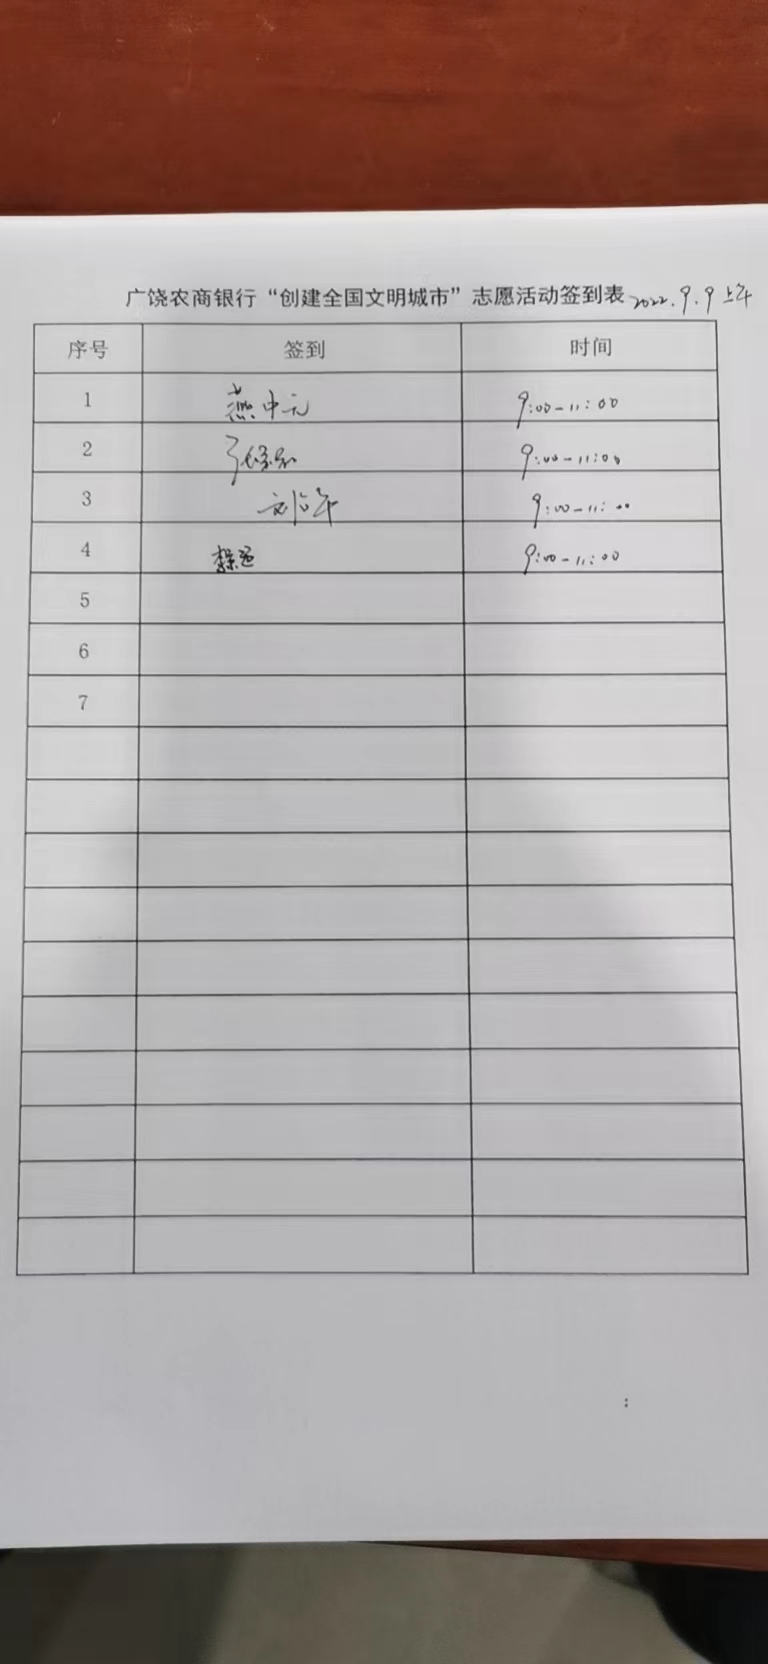 广饶农商银行“创建全国文明城市”志愿活动签到表 2022.9.9 上午
序号 签到 时间
1 燕中元 9:00-11:00
2 9:00-11:00
3 9:00-11:00
4 9:00-11:00
5
6
7